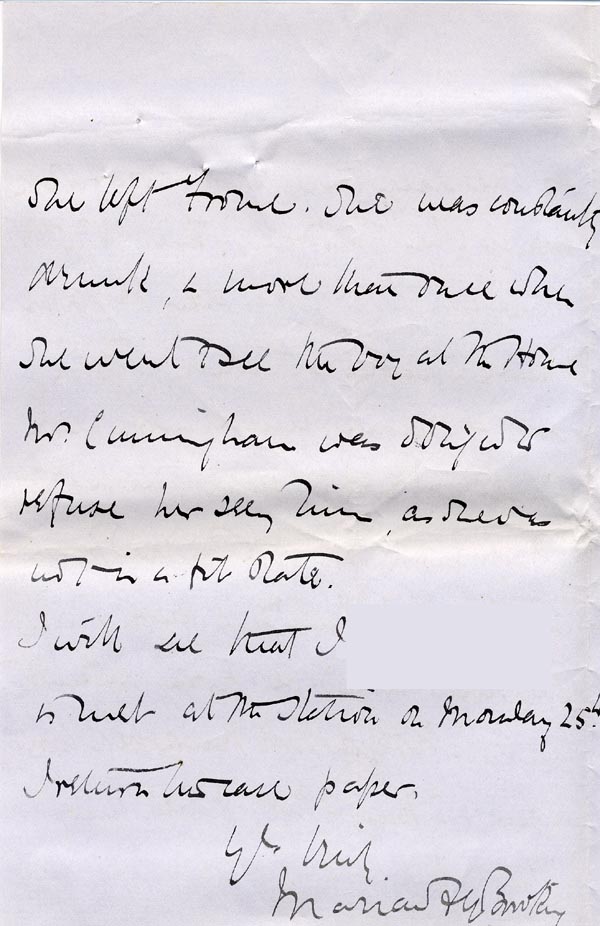 she left Frome. She was constantly
drunk, & more than once when
she went to see the boy at the Home
Mrs. Cunningham was obliged to
refuse her seeing him, as she was
not in a fit state.
I will see that I
is met at the station on Monday 25th
I return his case paper.
Yrs truly
Marian